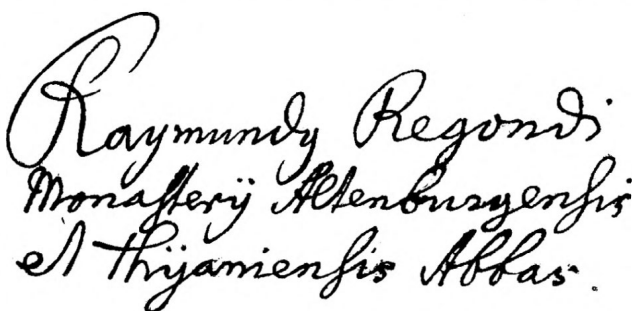 Raymundy Regondi
Monasterÿ Altenburgensis
et Thÿaniensis Abbas.